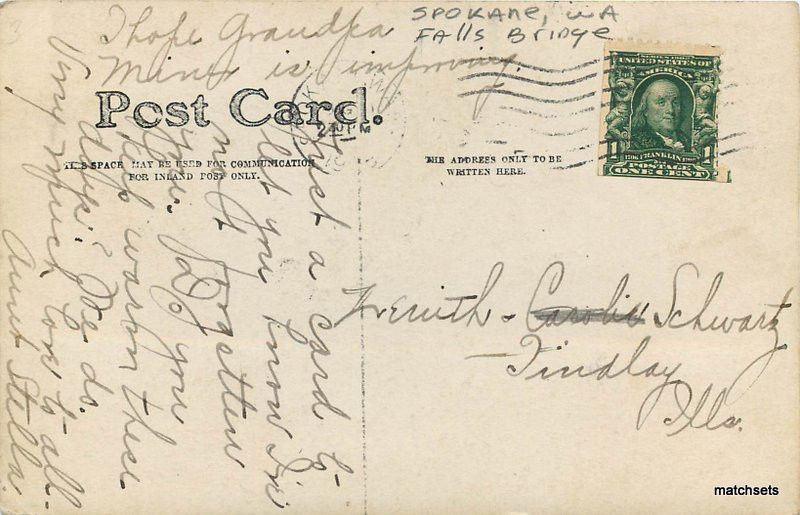 I hope Grandpa
Miner is improving.
SPOKANE, WA
FALLS BRIDGE
Post Card.
THIS SPACE MAY BE USED FOR COMMUNICATION
FOR INLAND POST ONLY.
THE ADDRESS ONLY TO BE
WRITTEN HERE.
UNITED STATES OF
AMERICA
1 FRANKLIN 1
POSTAGE
ONE CENT
PM
Just a card to
let you know I've
not forgotten
you. Do you
warm these
days? We do.
Very much love to all.
Aunt Stella.
Carolin Schwartz
Findlay
Ills.
matchsets